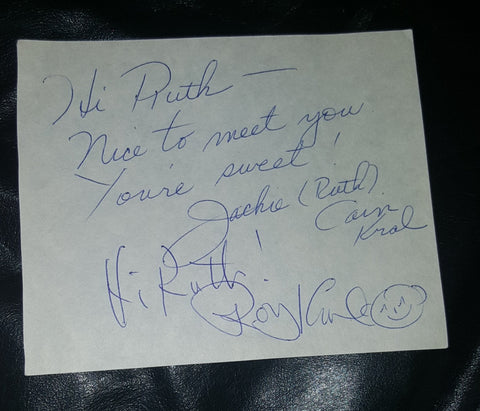 Hi Ruth —
Nice to meet you
You're sweet!
Jackie (Ruth)
Cain
Kral
Hi Ruth!
Roy Kral